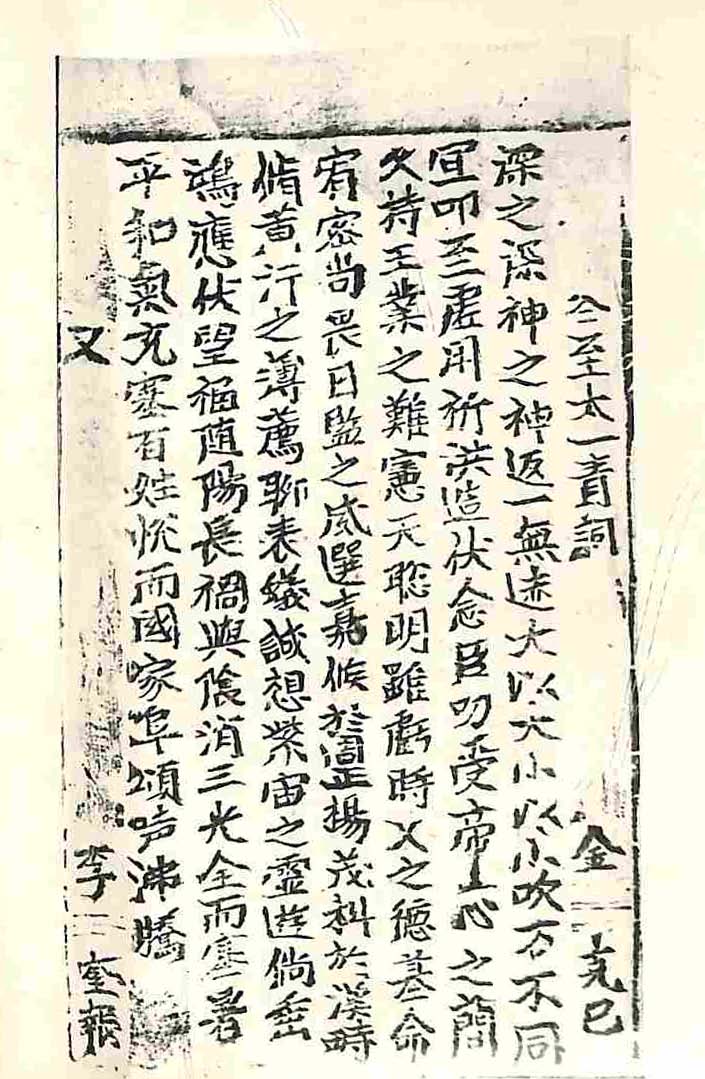 冬至太一青詞 金克己
深之深神之神返一無迹大以大小以小吹万不同
宜叩至虛用祈洪造伏念臣叨受帝心之簡
久持王業之難憲天聡明雖虧時乂之德基命
宥密尚畏日監之威選嘉候於周正揚茂科於漢畤
脩黃汙之薄薦聊表蟻誠想紫宙之霊遊倘垂
鴻應伏望福随陽長禍與陰消三光全而寒暑
平和氣充塞百姓悅而國家阜頌声沸騰
又 李奎報